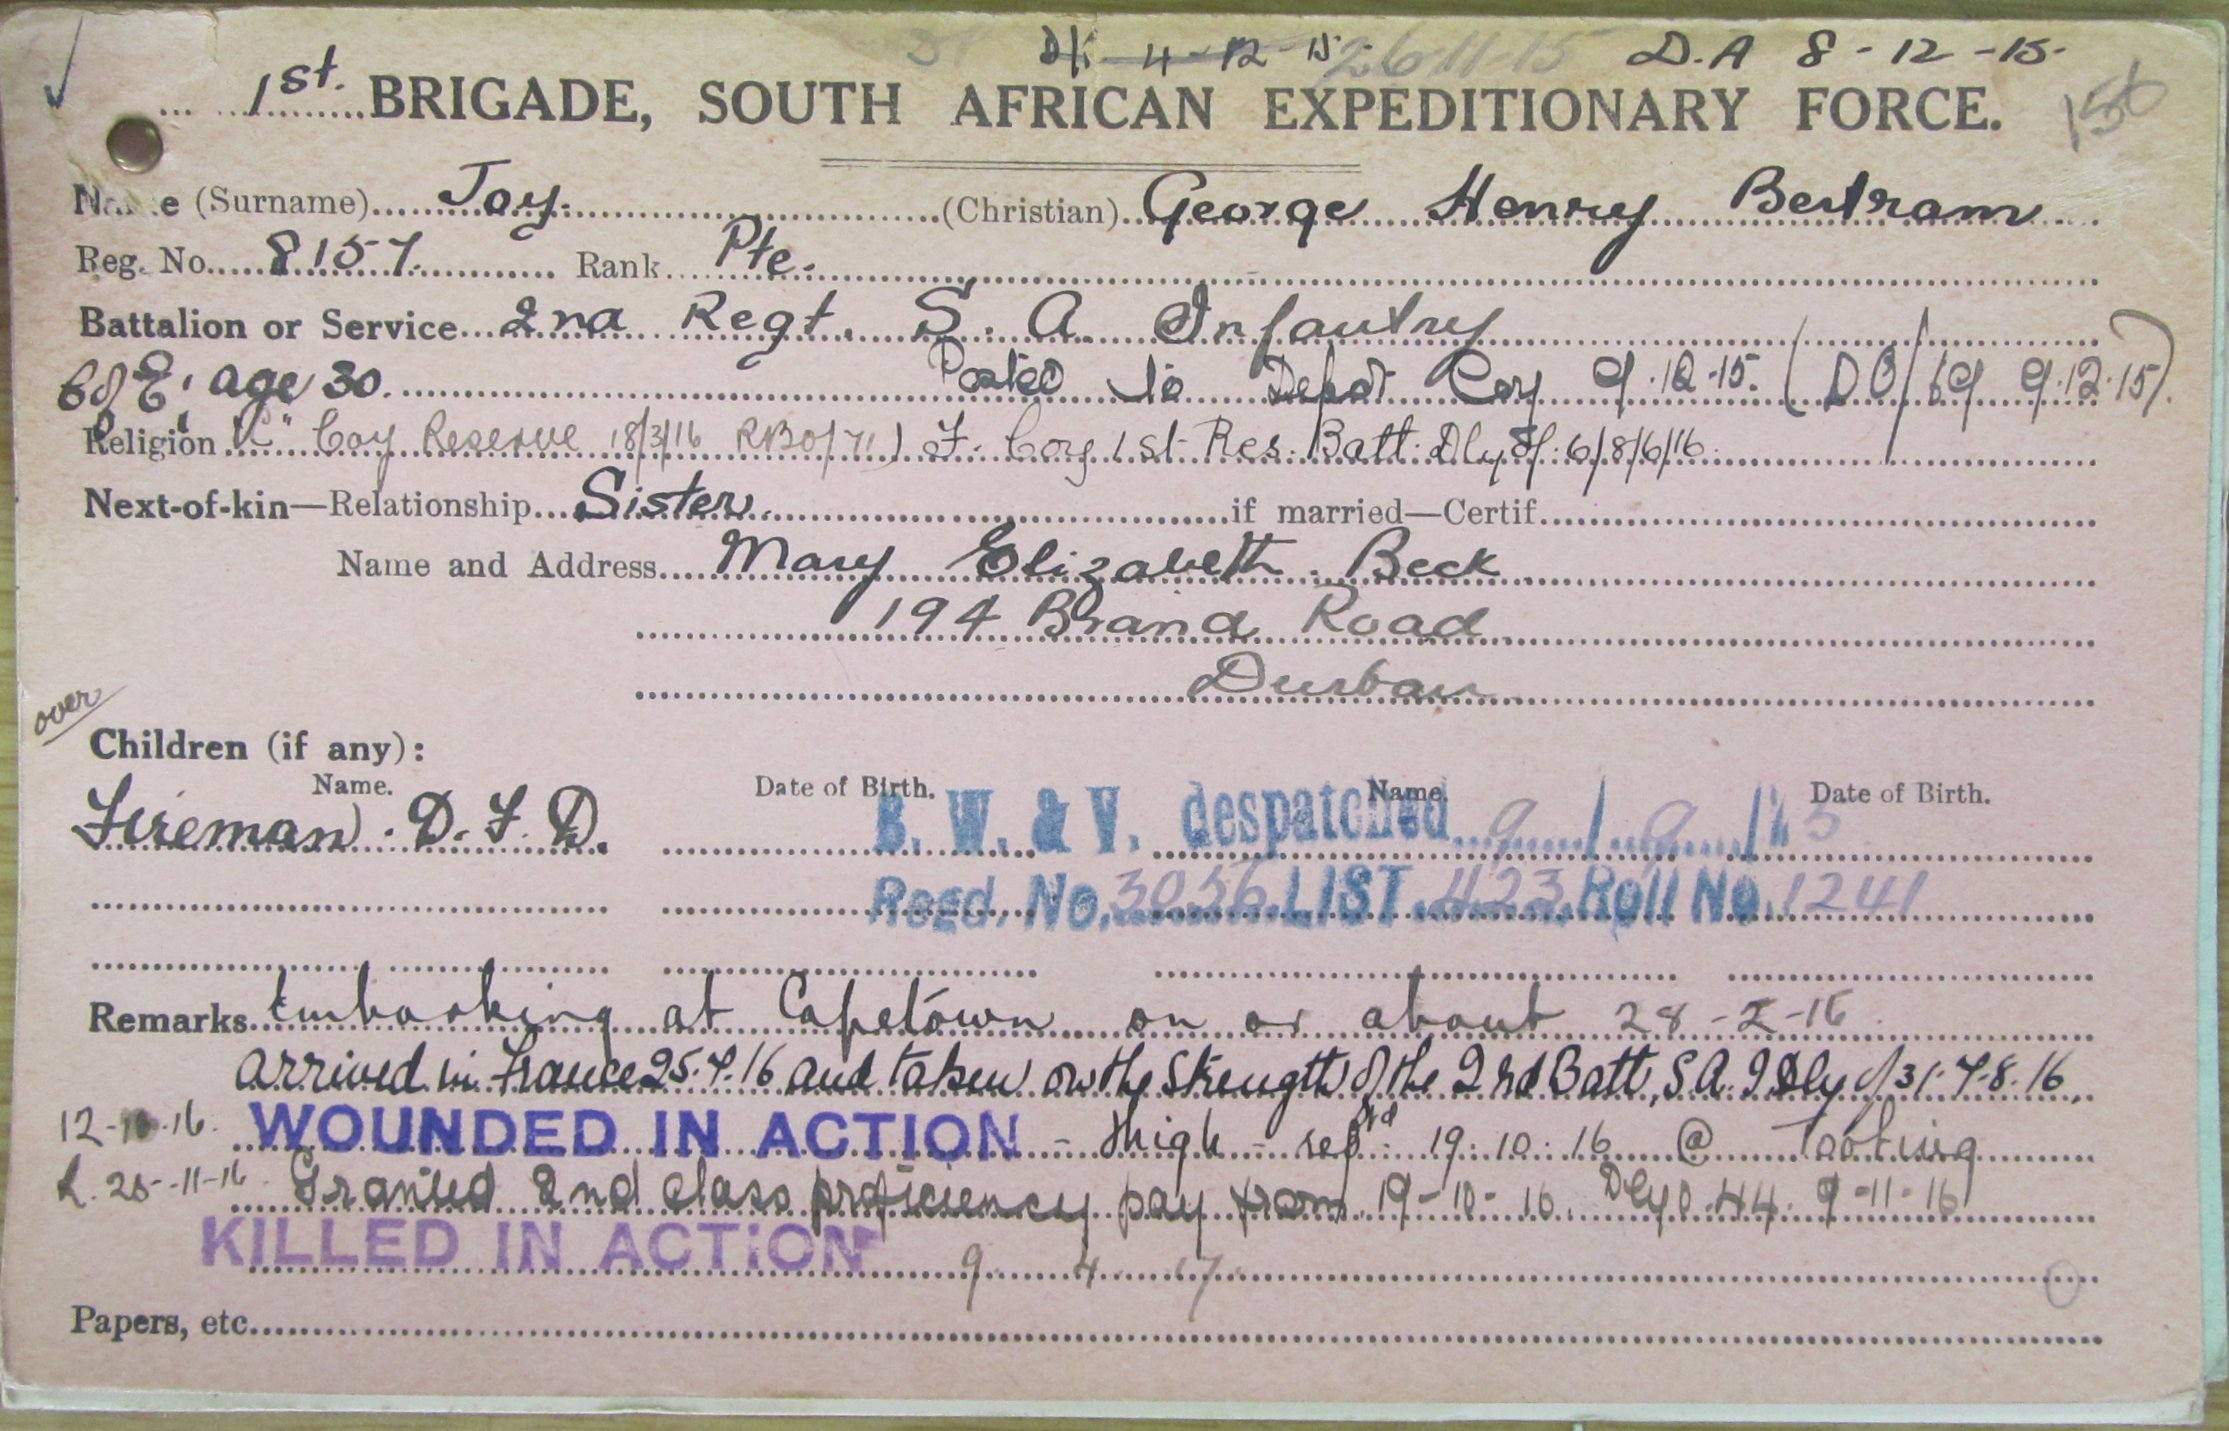 4-12-15 26-11-15 D.A 8-12-15.
1st. BRIGADE, SOUTH AFRICAN EXPEDITIONARY FORCE. 156
Name (Surname) Joy. (Christian) George Henry Bertram
Reg. No. 8157. Rank Pte.
Battalion or Service 2nd Regt. S. A. Infantry
E. age 30. Posted to Depot Coy 9.12.15. (DO/69 9.12.15).
Religion "K" Coy Reserve 18/3/16 RBO/71) F. Coy 1st Res. Batt: Dly O/: 6/8/6/16
Next-of-kin—Relationship Sister. if married—Certif.
Name and Address Mary Elizabeth Beck
194 Brand Road
Durban
over
Children (if any):
Name. Date of Birth. Name. Date of Birth.
Fireman. D. F. D. B. W. & V. despatched 9/9/
Regd. No. 3056 LIST 423 Roll No. 1241
Remarks Embarking at Capetown on or about 28-2-16
arrived in France 25.7.16 and taken on the Strength of the 2nd Batt, S.A.I Dly O/31.7-8.16.
12-10-16. WOUNDED IN ACTION - thigh - repd. 19.10.16 @ Tooting
25-11-16 Granted 2nd class proficiency pay from 19-10-16. Dly O. 44. 9-11-16
KILLED IN ACTION 9 4 17
Papers, etc.